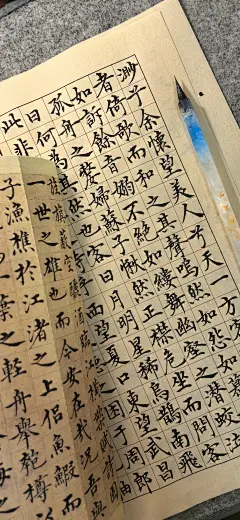 渺兮予懷望美人兮天一
者倚歌而和之其聲嗚然如怨如
如訴餘音嫋不絕如縷舞幽壑之潛蛟泣
孤舟之嫠婦蘇子愀然正襟危坐而問客
曰何為其然也客曰月明星稀烏鵲南飛
此非望夏口東望武昌
之困于周郎
旌旗蔽空釃酒臨江橫槊賦詩固
一世之雄也而今安在哉況吾與
子漁樵於江渚之上侶魚鰕而
一葉之輕舟舉匏樽